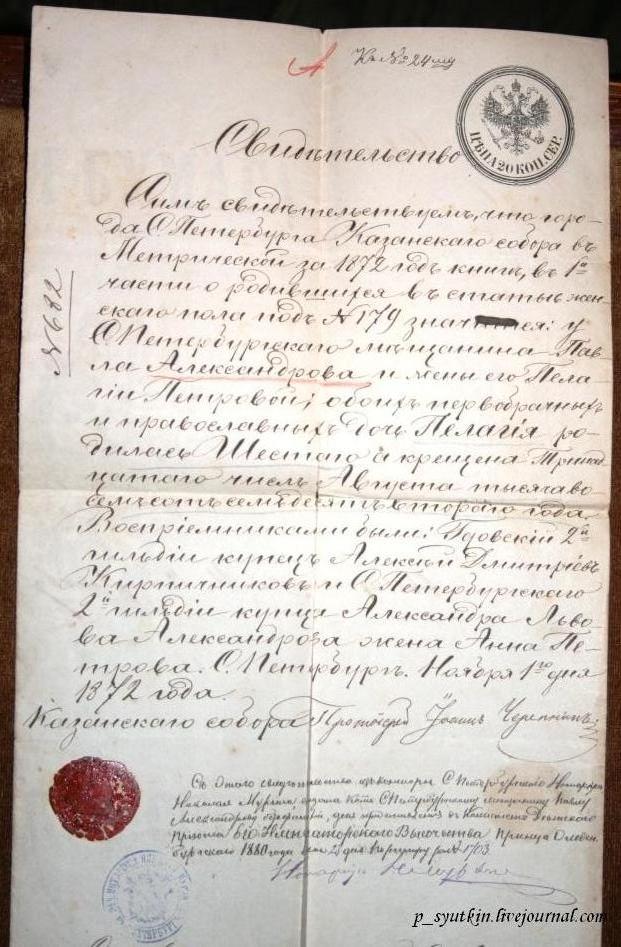 Къ № 24му
ЦѢНА 20 КОП. СЕР.
Свидѣтельство
№ 682
Симъ свидѣтельствуемъ, что горо-
да С. Петербурга Казанскаго собора въ
Метрической за 1872 годъ книгѣ, въ 1й
части о родившихся въ статьѣ жен-
скаго пола подъ № 179 значится: у
С. Петербургскаго мѣщанина Пав-
ла Александрова и жены его Пела-
гіи Петровой; обоихъ первобрачныхъ
и православныхъ дочь Пелагія ро-
дилась Шестаго а крещена Тринад-
цатаго числъ Августа тысячаво-
семьсотъ семьдесятъ втораго года.
Воспріемниками были: Гдовскій 2й
гильдіи купецъ Алексѣй Дмитріевъ
Кирпичниковъ и С. Петербургскаго
2й гильдіи купца Александра Льво-
ва Александрова жена Анна Пе-
трова. С. Петербургъ. Ноября 1го дня
1872 года.
Казанскаго собора Протоіерей Іоаннъ Черепнинъ
Съ этого свидѣтельства изъ конторы С. Петербургскаго Нотаріуса
Николая выдана копія С. Петербургскому мѣщанину Павлу
Александрову для представленія въ Дѣтскаго
пріюта Его Императорскаго Высочества Принца Ольден-
бургскаго 1880 года дня по реестру № 1703
Нотаріусъ
p_syutkin.livejournal.com